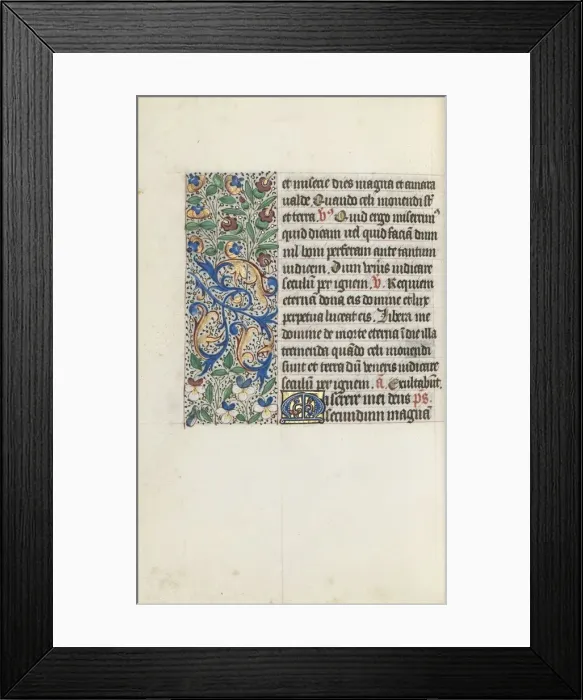 et miserie dies magna et amara
valde Quando celi movendi st
et terra. V Quid ergo miserim
quid dicam vel quid faciã dum
nil boni perferam ante tantum
iudicem. Dum veñis iudicare
seculũ per ignem. V. Requiem
eternã dona eis domine et lux
perpetua luceat eis. Libera me
domine de morte eterna ĩ die illa
tremenda quãdo celi movendi
sunt et terra dũ veneris iudicare
seculũ per ignem. a. Exultabũt.
Miserere mei deus ps.
secundum magnã